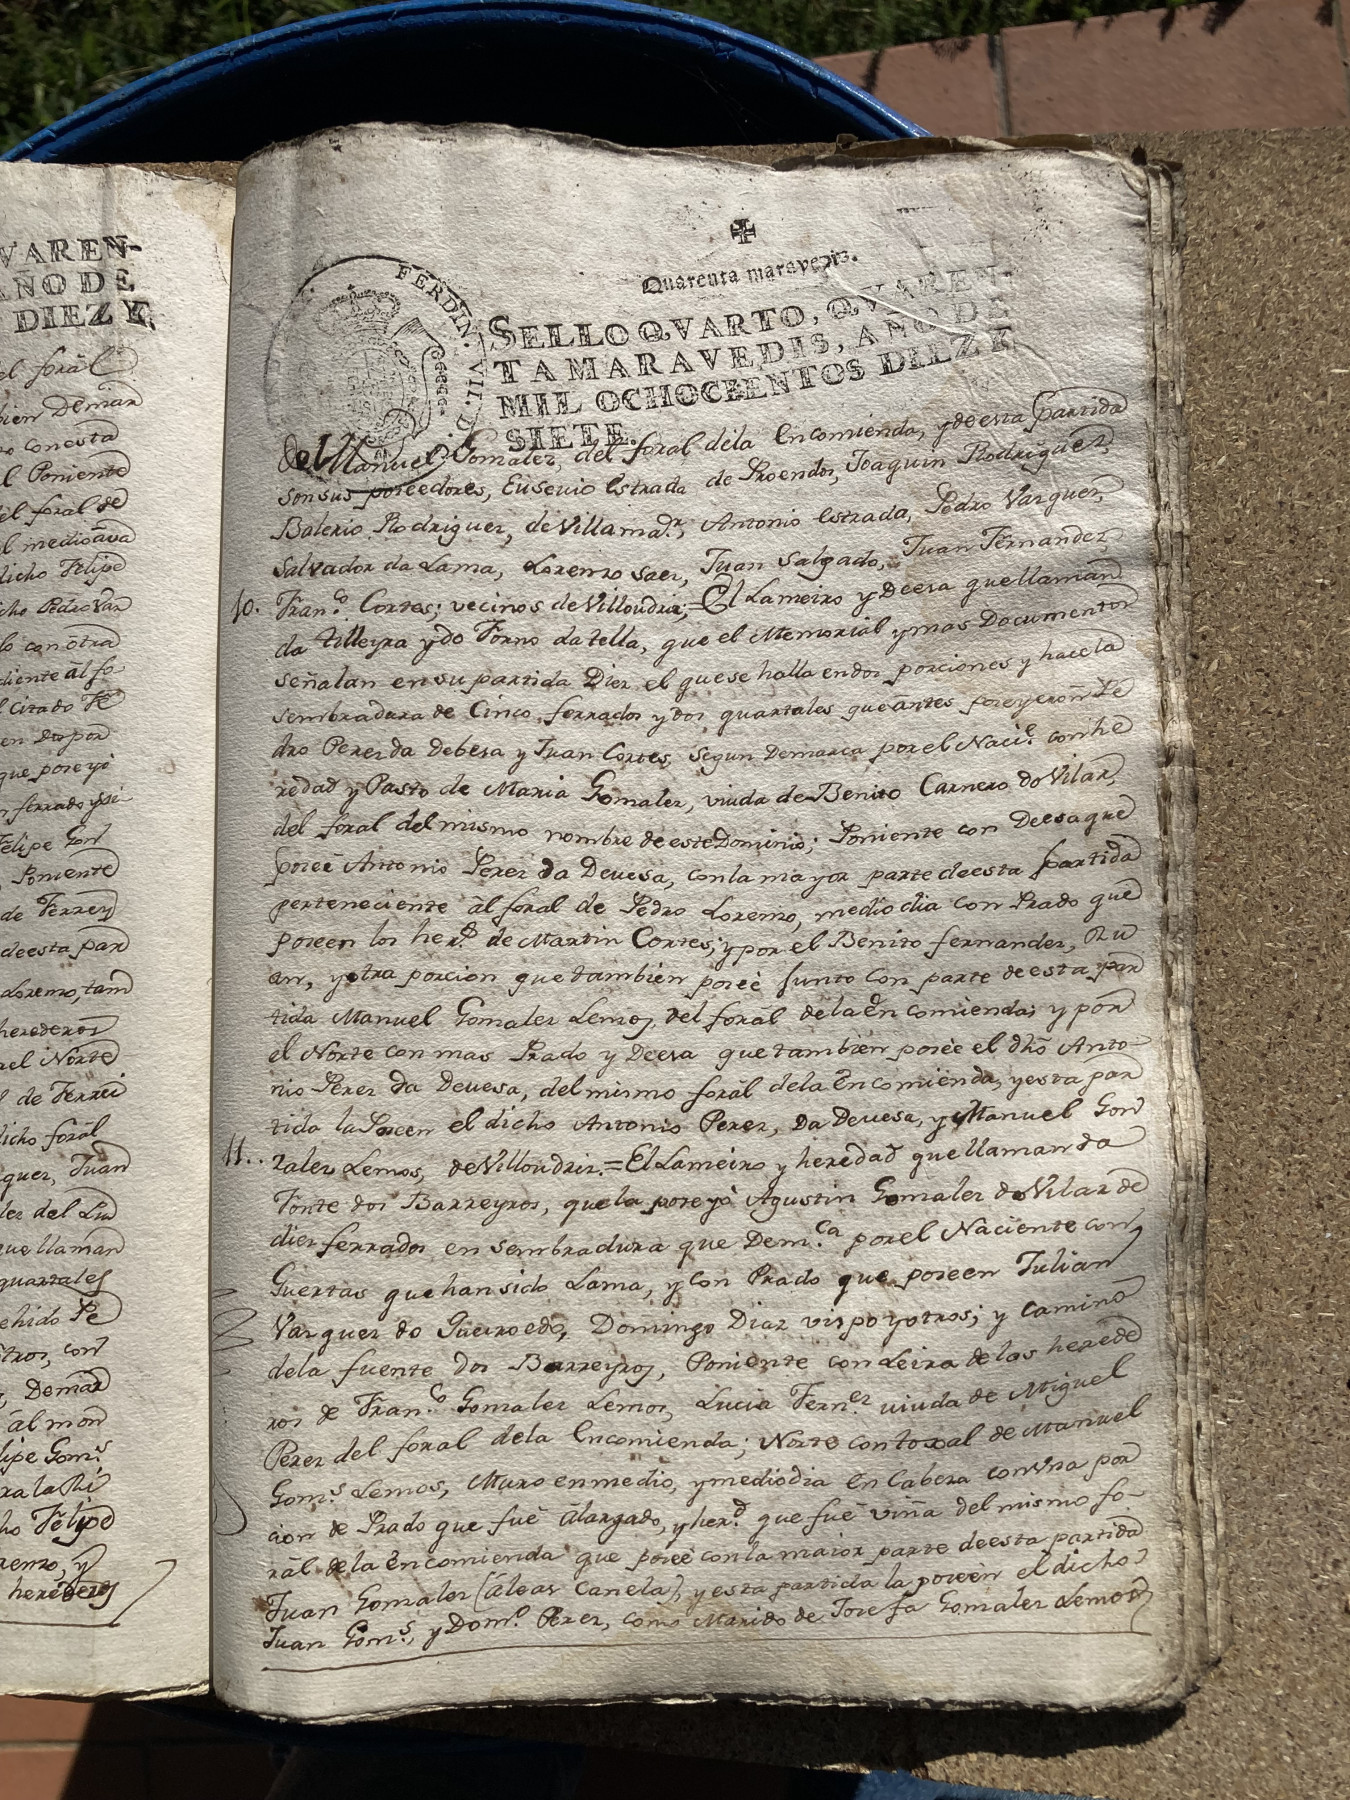 VAREN-
AÑO DE
DIEZ Y
el forál
bien Demar
ro conesta
l Poniente
del foral de
el medio
dicho Felipe
cho Pedro Var
lo con otra
diente ál fo-
l Citado Fe
en Dn por
que poseyó
n ferrado y
Felipe Gon
Poniente
de Ferrey
deesta par
Lorenzo, tam
herederos
el Norte
l de Ferrei
dicho forál
quez, Juan
lez del
que llaman
quartales
ehido Pe
otros, con
Demar
ál mon
lipe Gomˢ
ra la
ho Felipe
renzo, y
herederos
✠
Quarenta maravedis.
FERDIN. VII. D.
SELLO QVARTO, QVAREN-
TA MARAVEDIS, AÑO DE
MIL OCHOCIENTOS DIEZ Y
SIETE.
de Manuel Gonzalez, del foral dela Encomienda, ydeesta Partida
sonsus poseedores, Eusevio Estrada de Proendos, Joaquin Rodriguez,
Balerio Rodriguez, de Villamaʳ, Antonio Estrada, Pedro Varquez,
Salvador da Lama, Lorenzo Saez, Juan Salgado, Juan Fernandez,
10. Franᶜᵒ Cortes; vecinos de Villoudriz;= El Lameiro y Deesa que llaman
da tilleyra ydo Forno da tella, que el Memorial ymas Documentos
señalan en su partida Diez el quese halla endos porciones y hacela
sembradura de Cinco ferrados ydos quartales que ántes poseyeron Pe
dro Perez da debesa y Juan Cortes, segun Demarca por el Naciᵉ con he
redad y Pasto de Maria Gonzalez, viuda de Benito Carnero do Vilar,
del foral del mismo nombre de este Dominio; Poniente con Deesa que
poseé Antonio Perez da Devesa, con la mayor parte deesta partida
perteneciente ál foral de Pedro Lorenzo, medio dia con Prado que
poseen los herˢ de Martin Cortes; y por el Benito fernandez,
an, yotra porcion que tambien poseé junto con parte deesta par
tida Manuel Gonzalez Lemos, del foral dela Encomienda; y por
el Norte con mas Prado y Deesa que tambien poseé el dhõ Anto-
nio Perez da Devesa, del mismo forál dela Encomienda, yesta par
tida la Poseen el dicho Antonio Perez, da Devesa, y Manuel Gon
11.. zalez Lemos, de Villoudriz.= El Lameiro y heredad que llaman da
Fonte dos Barreyros, que la poseyó Agustin Gonzalez do Vilar de
diez ferrados en sembradura que Demᶜᵃ por el Naciente con
Guertas que han sido Lama, y con Prado que poseen Julian
Varquez do Gueiroedo, Domingo Diaz vispo yotros; y camino
dela fuente dos Barreyros, Poniente con Leira de los herede
ros de Franᶜᵒ Gonzalez Lemos, Lucia Fernᵉᶻ viuda de Miguel
Perez del foral dela Encomienda; Norte con toral de Manuel
Gomˢ Lemos, Muro enmedio, ymediodia en Cabeza con una por
cion de Prado que fué álargado, yherᵈ que fué viña del mismo fo-
rál dela Encomienda que poseé con la maior parte deesta partida
Juan Gonzalez (áleas Canela), yesta partida la poseen el dicho
Juan Gomˢ, y Domᵒ Perez, como Marido de Josefa Gonzalez Lemos